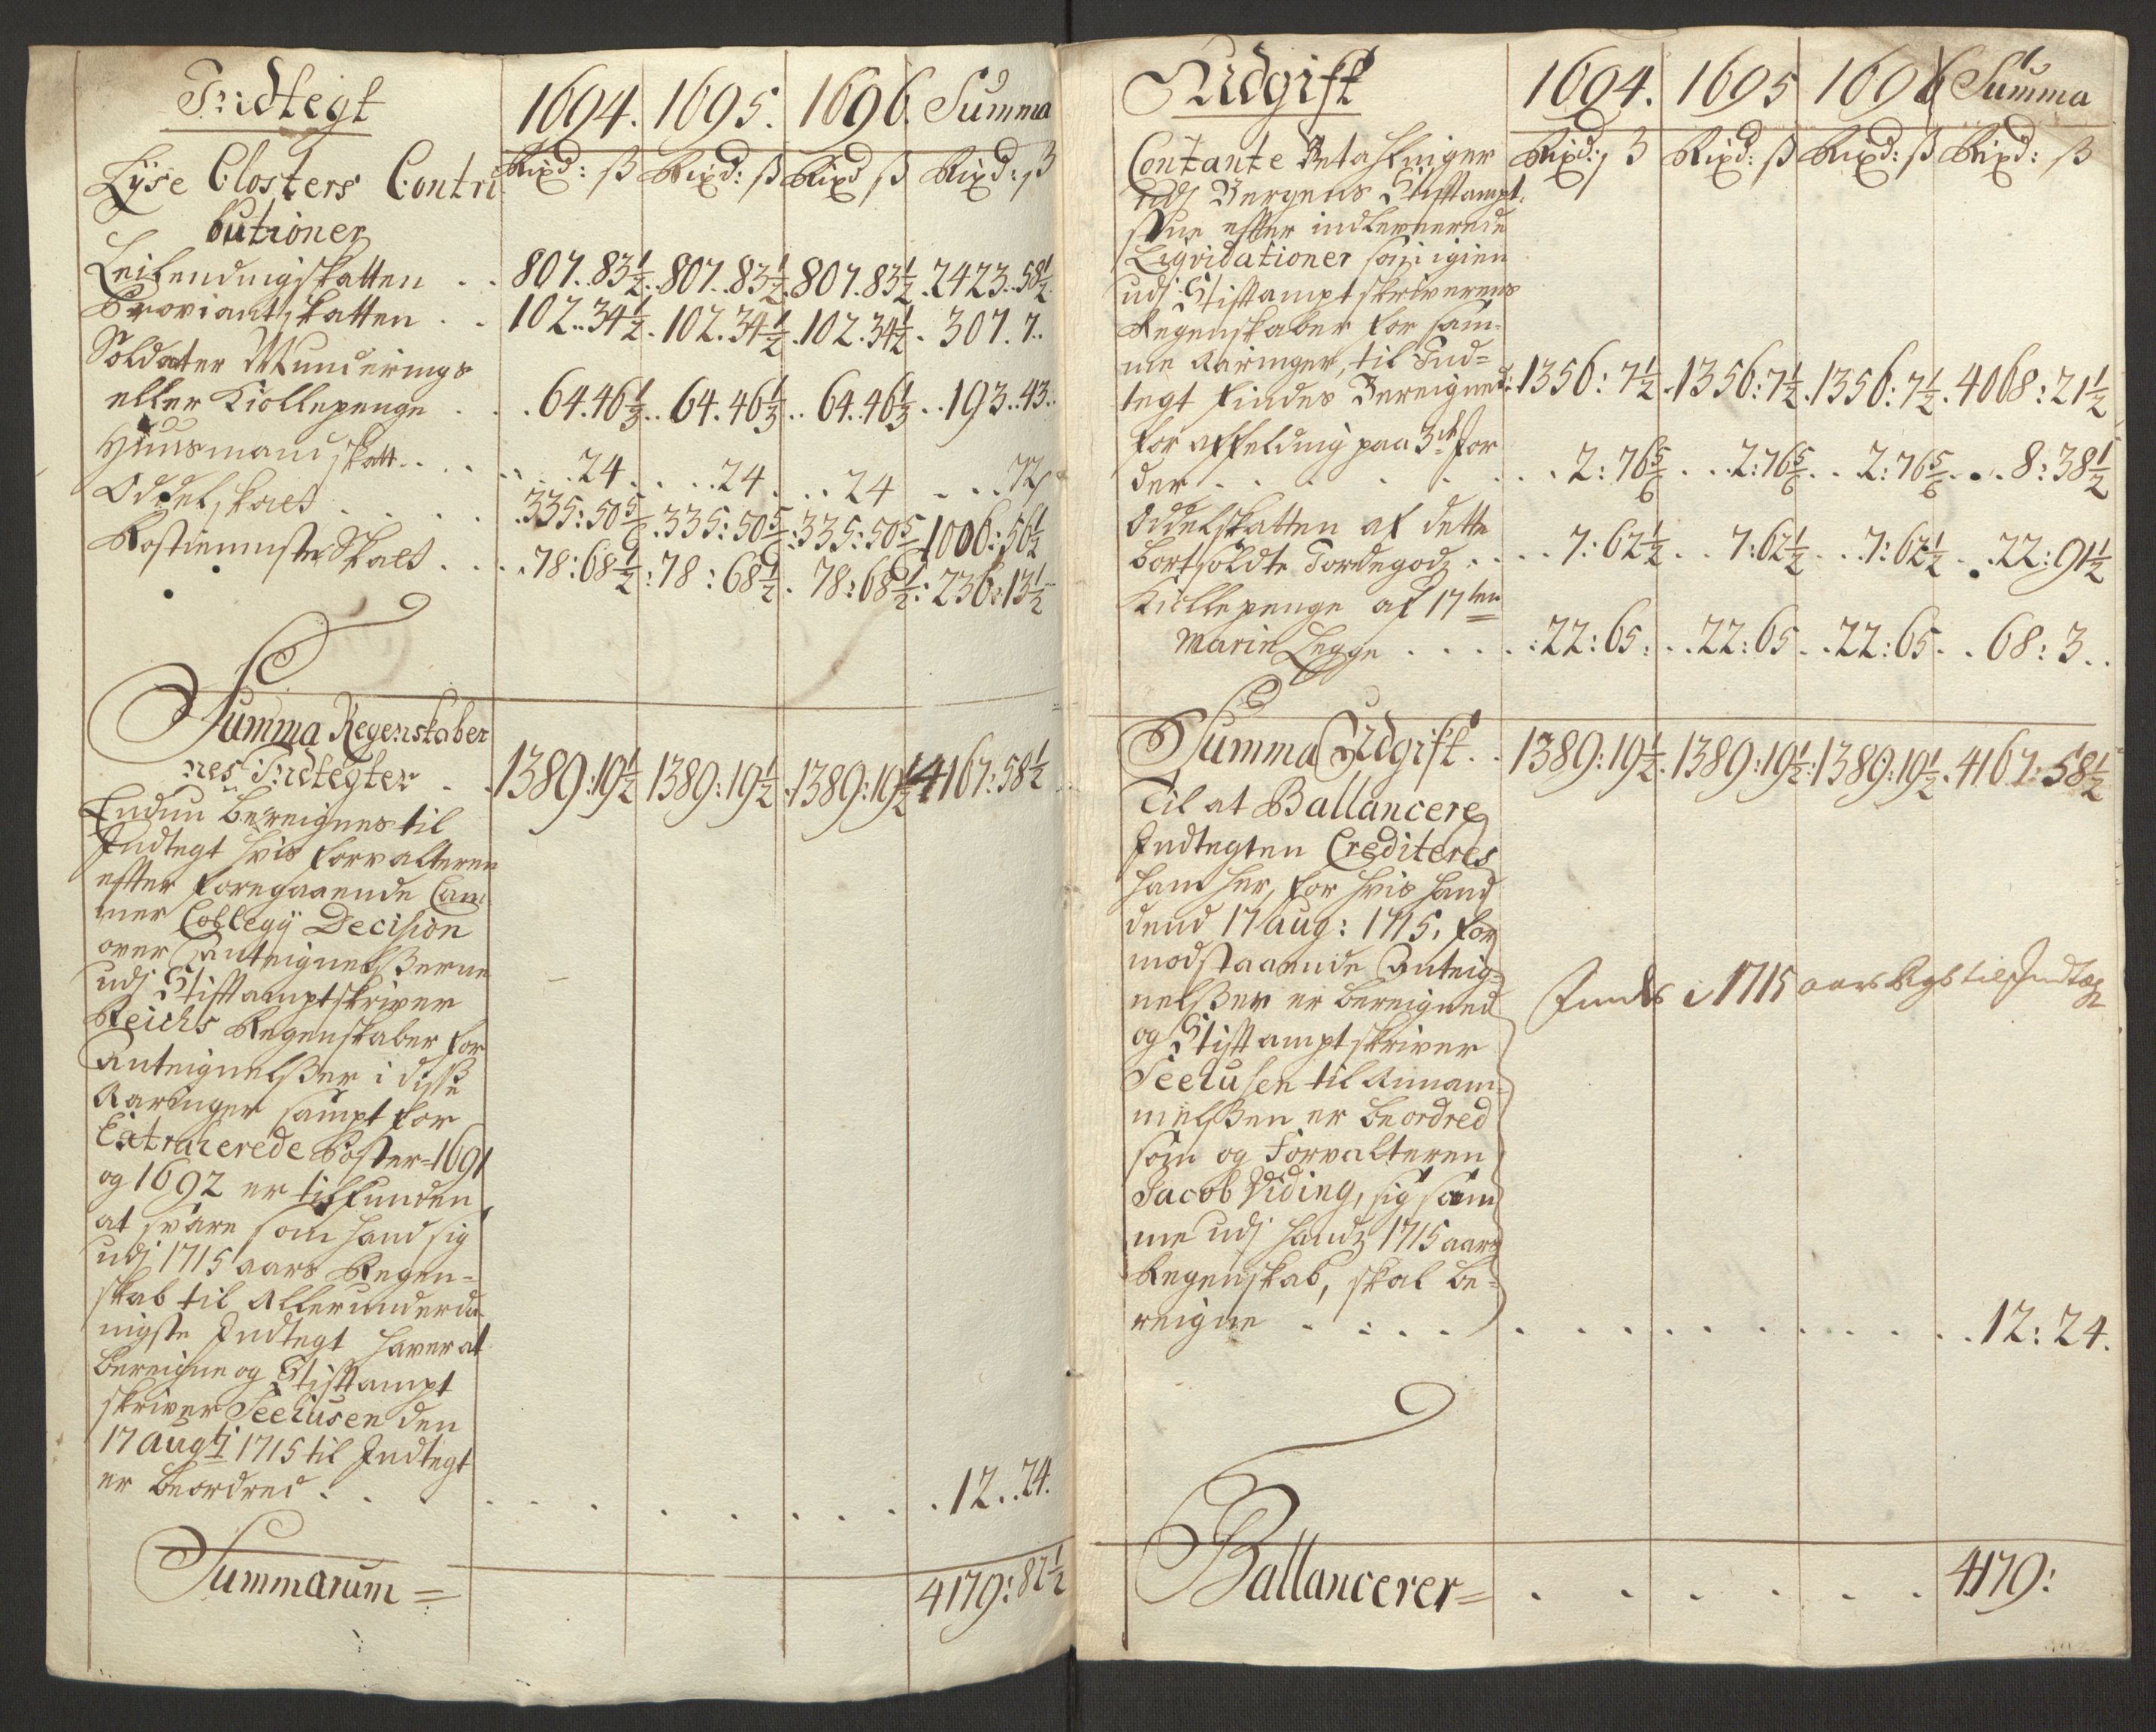 Indtegt
1694. 1695. 1696. Summa
Rixd: ß Rixd: ß Rixd ß Rixd: ß
Lÿse Closters Contri
butioner
Leilendingskatten . . 807..83½. 807..83½. 807..83½. 2423..58½
Proviantskatten . . 102..34½. 102..34½. 102..34½. 307..7..
Soldater Munderings
eller Kiollepenge . . . 64..46⅓.. 64..46⅓.. 64..46⅓.. 193..43..
Huusmand skatt . . . . 24 . . . 24 . . . 24 . . . 72
Oddelskatt . . . . 335:50⅚. 335:50⅚: 335:50⅚ 1006:56½
Rostienniste Skatt . . . 78:68½: 78:68½. 78:68½: 236:13½
Summa Regenskaber
nes Indtegter . . 1389:19½ 1389:19½. 1389:19½ 4167:58½
Endnu bereignes til
Indtegt hvis forvalteren
efter foregaaende Cam
mer Collegÿ Decision
over Anteignelßerne
udj Stiftamptskriver
Reichs Regenskaber for
Anteignelßer i disse
Aaringer sampt for
Extraherede Poster 1691
og 1692 er tilfunden
at svare som hand sig
udj 1715 aars Regen=
skab til Allerunderda
nigste Indtegt haver at
bereigne og Stiftampt
skriver Seehusen den
17 Augti 1715 til Indtegt
er beordred . . . 12..24.
Summarum = 4179:82½
Udgift
1694. 1695 1696 Summa
Rixd: ß Rixd: ß Rixd: ß Rixd: ß
Contante Betahlninger
udj Bergens Stiftampt
stue efter indleverede
Liqvidationer som igien
udj Stiftamptskriverens
Regenskaber for sam=
me Aaringer, til Ind=
tegt findes Bereigned: 1356:7½. 1356:7½. 1356:7½. 4068:21½
for affelding paa 3de Jor
der . . . . . . 2:76⅚ . . 2:76⅚ . . 2:76⅚ . . 8:38½
Oddelskatten af dette
bortsoldte Jordegodz . . . . 7:62½ . . 7:62½ . . 7:62½ . . 22:91½
Kiollepenge af 17ten
Marin Legge . . . . : 22:65: . . 22:65 . . 22:65 . . 68:3 . .
Summa Udgift . . 1389:19½. 1389:19½: 1389:19½. 4167:58½
Til at Ballancere
Indtegten Crediteres
ham her, for hvis hand
dend 17 Aug: 1715, for
modstaaende Anteig=
nelßer er bereigned
og Stiftamptskriver
Seehusen til Annam=
melßen er beordred
som og Forvalteren
Jacob Widing, sig sam
me udj handz 1715 aars
Regenskab, skal be=
reigne . . . . . 12:24.
Finds i 1715 aars Rgb til Indtægt
Ballancerer = . . . . . . 4179: